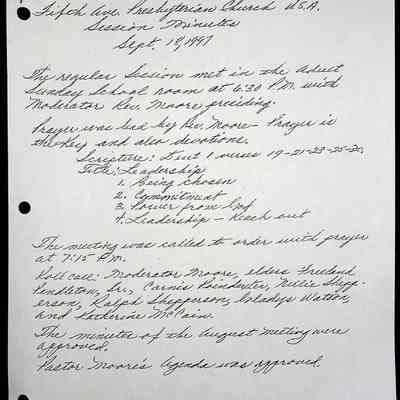 Fifth Ave. Presbyterian Church U.S.A.
Session Minutes
Sept. 18, 1997
The regular Session met in the Adult
Sunday School room at 6:30 P.M. with
Moderator Rev. Moore presiding.
Prayer was lead by Rev. Moore - Prayer is
the key and also devotions.
Scripture: Deut 1 verses 19-21-23-25-30.
Title: Leadership
1. Being chosen
2. Commitment
3. Power from God
4. Leadership - Reach out
The meeting was called to order with prayer
at 7:15 P.M.
Roll call: Moderator Moore, elders Freeland
Pendleton, Sr., Carnis Poindexter, Nellie Shepp-
erson, Ralph Shepperson, Goladys Watson,
and Katherine McCain.
The minutes of the August meeting were
approved.
Pastor Moore's Agenda was approved.